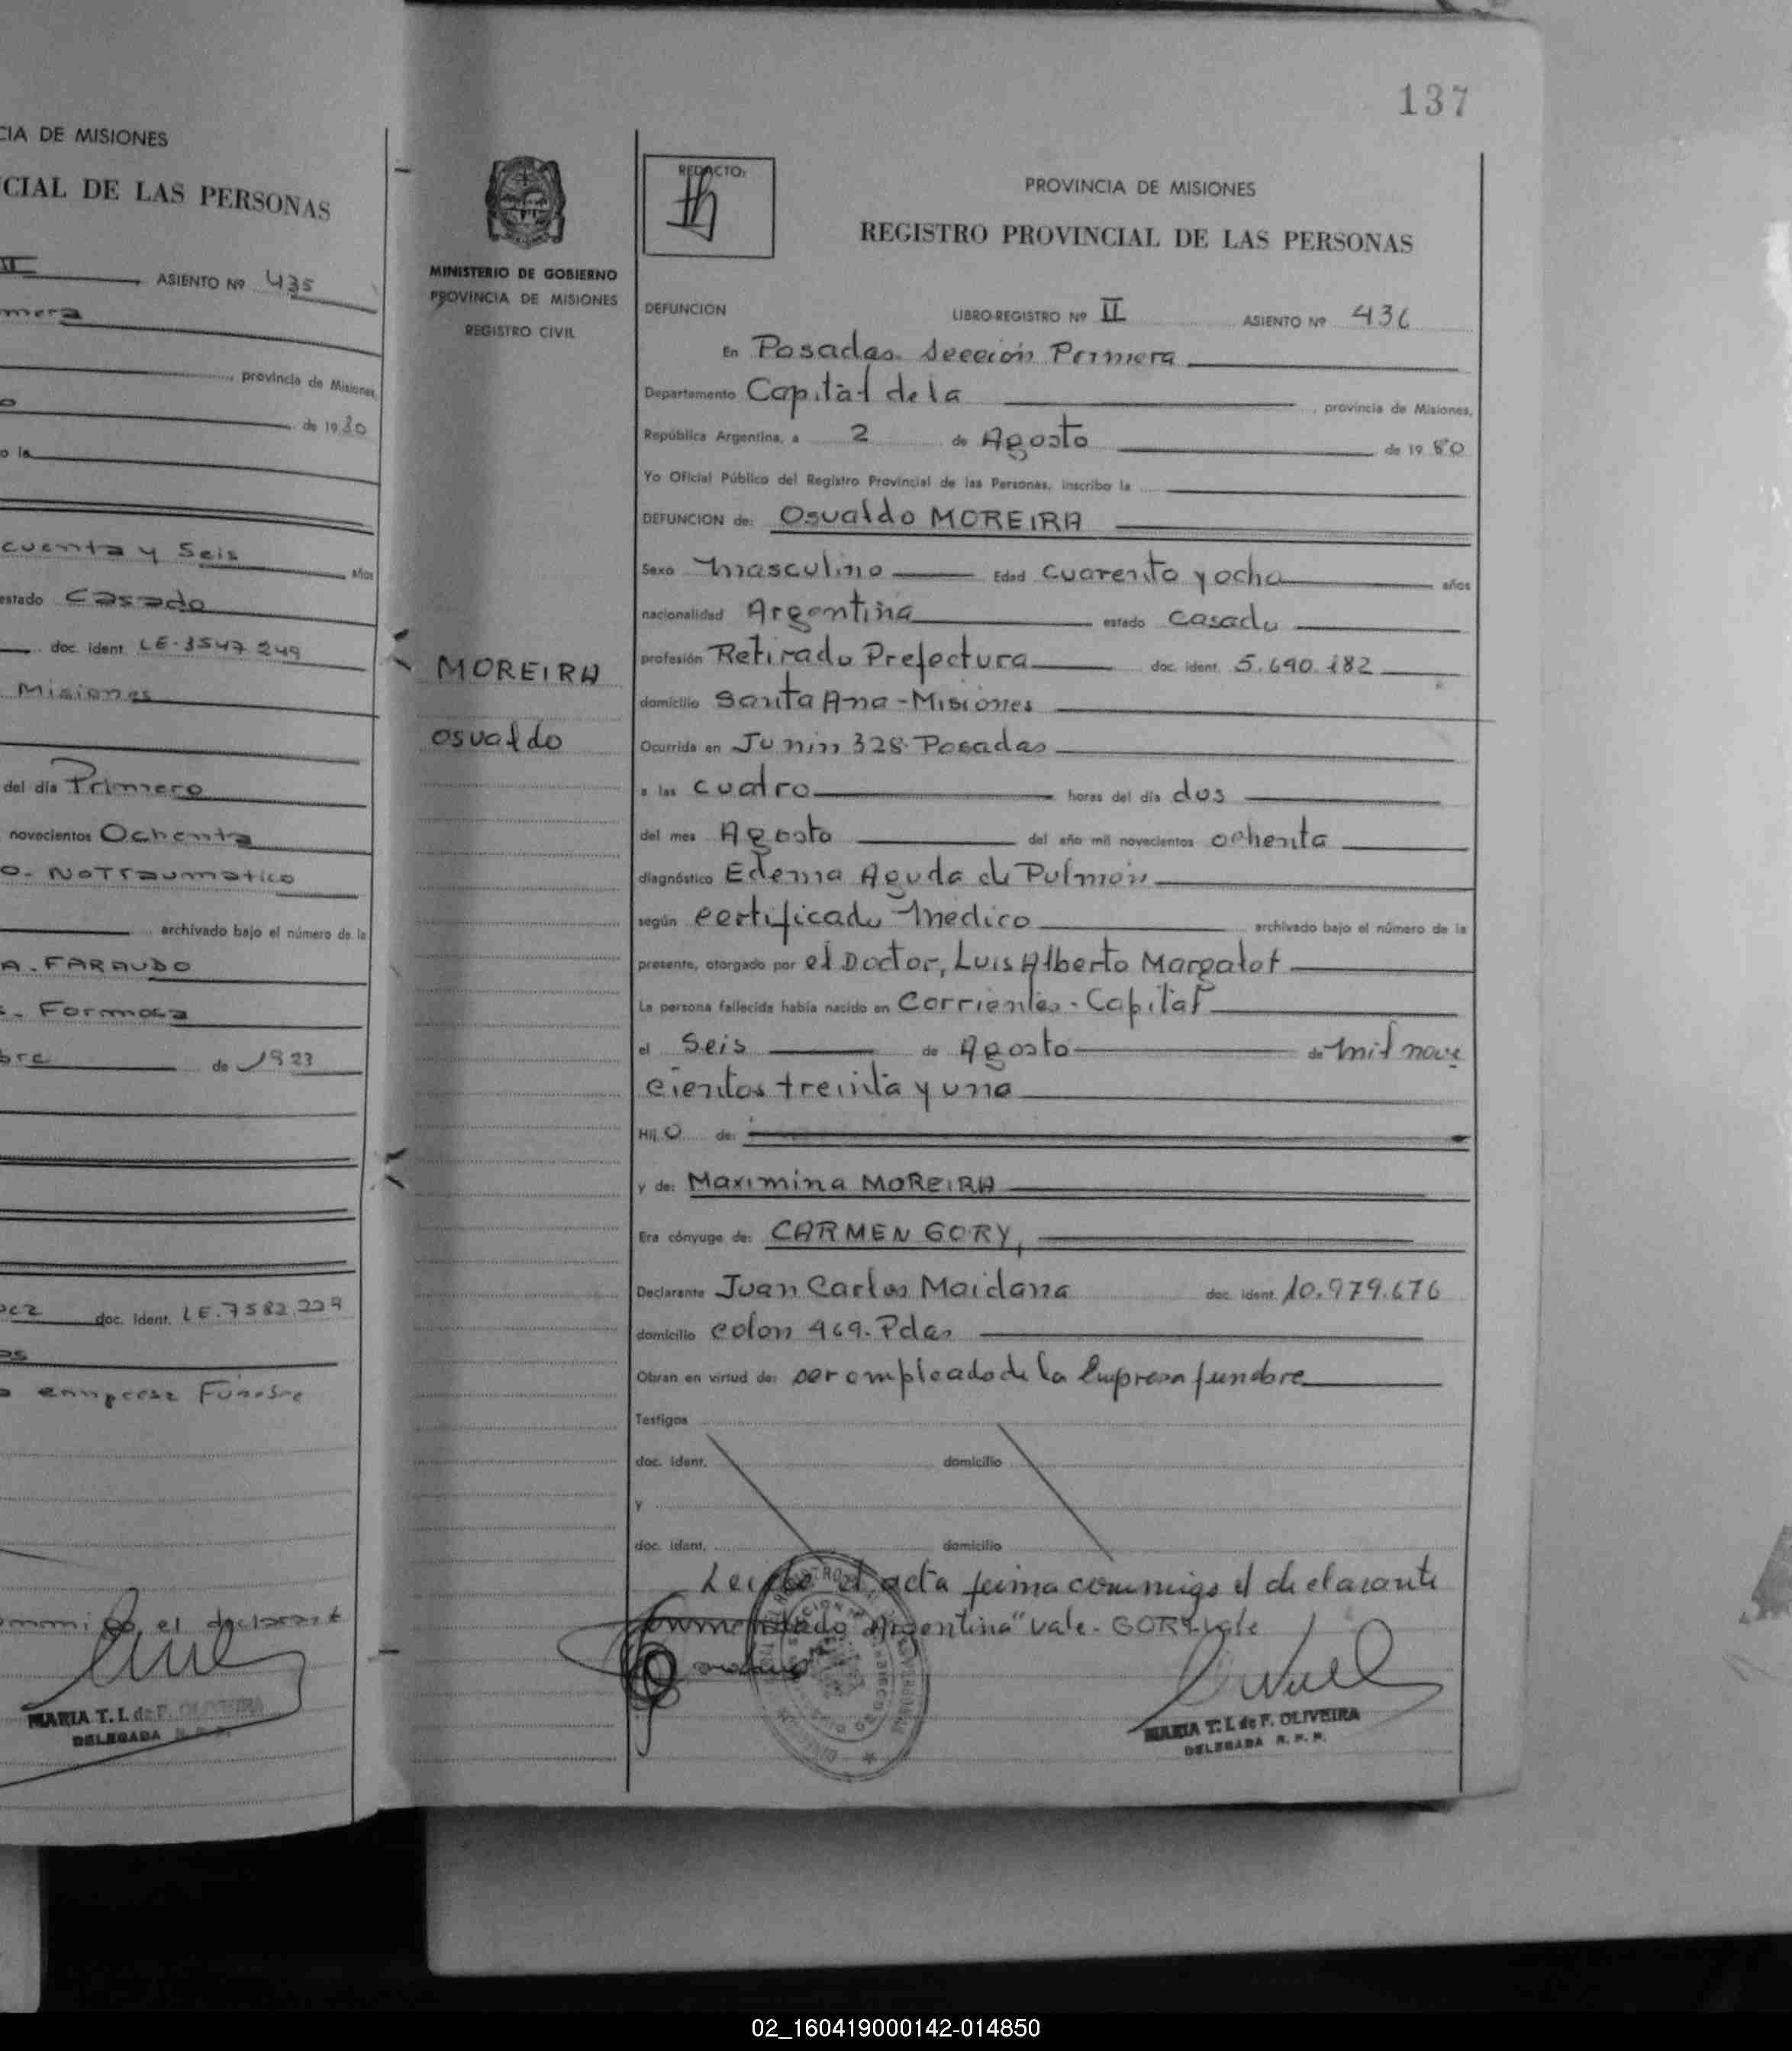 CIA DE MISIONES
CIAL DE LAS PERSONAS
II ASIENTO Nº 435
mera
provincia de Misiones,
o de 1980
o la
cuenta y Seis años
estado Casado
doc. ident. LE-3547 249
Misiones
del día Primero
novecientos Ochenta
o. No Traumatico
archivado bajo el número de la
A. FARAUDO
- Formosa
bre de 1923
doc. Ident. LE.7582.229
os
empresa Funebre
el declarant
MARIA T. I. de F. OLIVEIRA
DELEGADA R. P. P.
MINISTERIO DE GOBIERNO
PROVINCIA DE MISIONES
REGISTRO CIVIL
MOREIRA
osvaldo
137
REDACTO:
PROVINCIA DE MISIONES
REGISTRO PROVINCIAL DE LAS PERSONAS
DEFUNCION LIBRO-REGISTRO Nº II ASIENTO Nº 436
En Posadas. Sección Primera
Departamento Capital de la , provincia de Misiones,
República Argentina, a 2 de Agosto de 1980
Yo Oficial Público del Registro Provincial de las Personas, inscribo la
DEFUNCION de: Osvaldo MOREIRA
Sexo Masculino Edad cuarenta y ocho años
nacionalidad Argentina estado casado
profesión Retirado Prefectura doc. ident. 5.690.182
domicilio Santa Ana - Misiones
Ocurrida en Junin 328. Posadas
a las cuatro horas del día dos
del mes Agosto del año mil novecientos ochenta
diagnóstico Edema Agudo de Pulmón
según certificado Medico archivado bajo el número de la
presente, otorgado por el Doctor, Luis Alberto Margalot
La persona fallecida había nacido en Corrientes - Capital
el Seis de Agosto de mil nove
cientos treinta y uno
Hijo de:
y de: Maximina MOREIRA
Era cónyuge de: CARMEN GORY,
Declarante Juan Carlos Maidana doc. ident. 10.979.676
domicilio colon 469. Pdas
Obran en virtud de: ser empleado de la Empresa funebre
Testigos
doc. ident. domicilio
y
doc. ident. domicilio
Leida el acta firma conmigo el declarante
Enmendado "Argentina" vale - GORY vale
MARIA T. I. de F. OLIVEIRA
DELEGADA R. P. P.
02_160419000142-014850